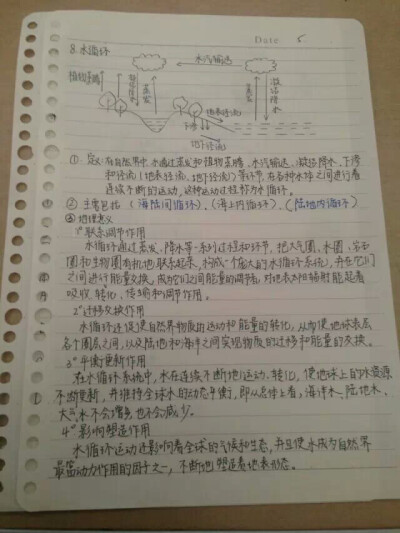 Date 5
8.水循环
水汽输送
植物蒸腾
凝结降水
蒸发
蒸发
凝结降水
地表径流
下渗
地下径流
① 定义:在自然界中,水通过蒸发和植物蒸腾、水汽输送、凝结降水、下渗
和径流(地表径流、地下径流)等环节,在各种水体之间进行着
连续不断的运动,这种运动过程称为水循环。
② 主要包括(海陆间循环)、(海上内循环)、(陆地内循环)
③ 地理意义
1°联系调节作用
水循环通过蒸发、降水等一系列过程和环节,把大气圈、水圈、岩石
圈和生物圈有机地联系起来,构成一个庞大的水循环系统,并在它们
之间进行能量交换,成为它们之间能量的调节者,对地表太阳辐射能起着
吸收、转化、传输和调节作用。
2°迁移交换作用
水循环还促使自然界物质的运动和能量的转化,从而使地球表层
各个圈层之间,以及陆地和海洋之间实现物质的迁移和能量的交换。
3°平衡更新作用
在水循环系统中,水在连续不断地运动、转化,使地球上的水资源
不断更新,并维持全球水的动态平衡,即从总体上看,海洋水、陆地水、
大气水不会增多也不会减少。
4°影响塑造作用
水循环运动还影响着全球的气候和生态,并且使水成为自然界
最富动力作用的因子之一,不断地塑造着地表形态。